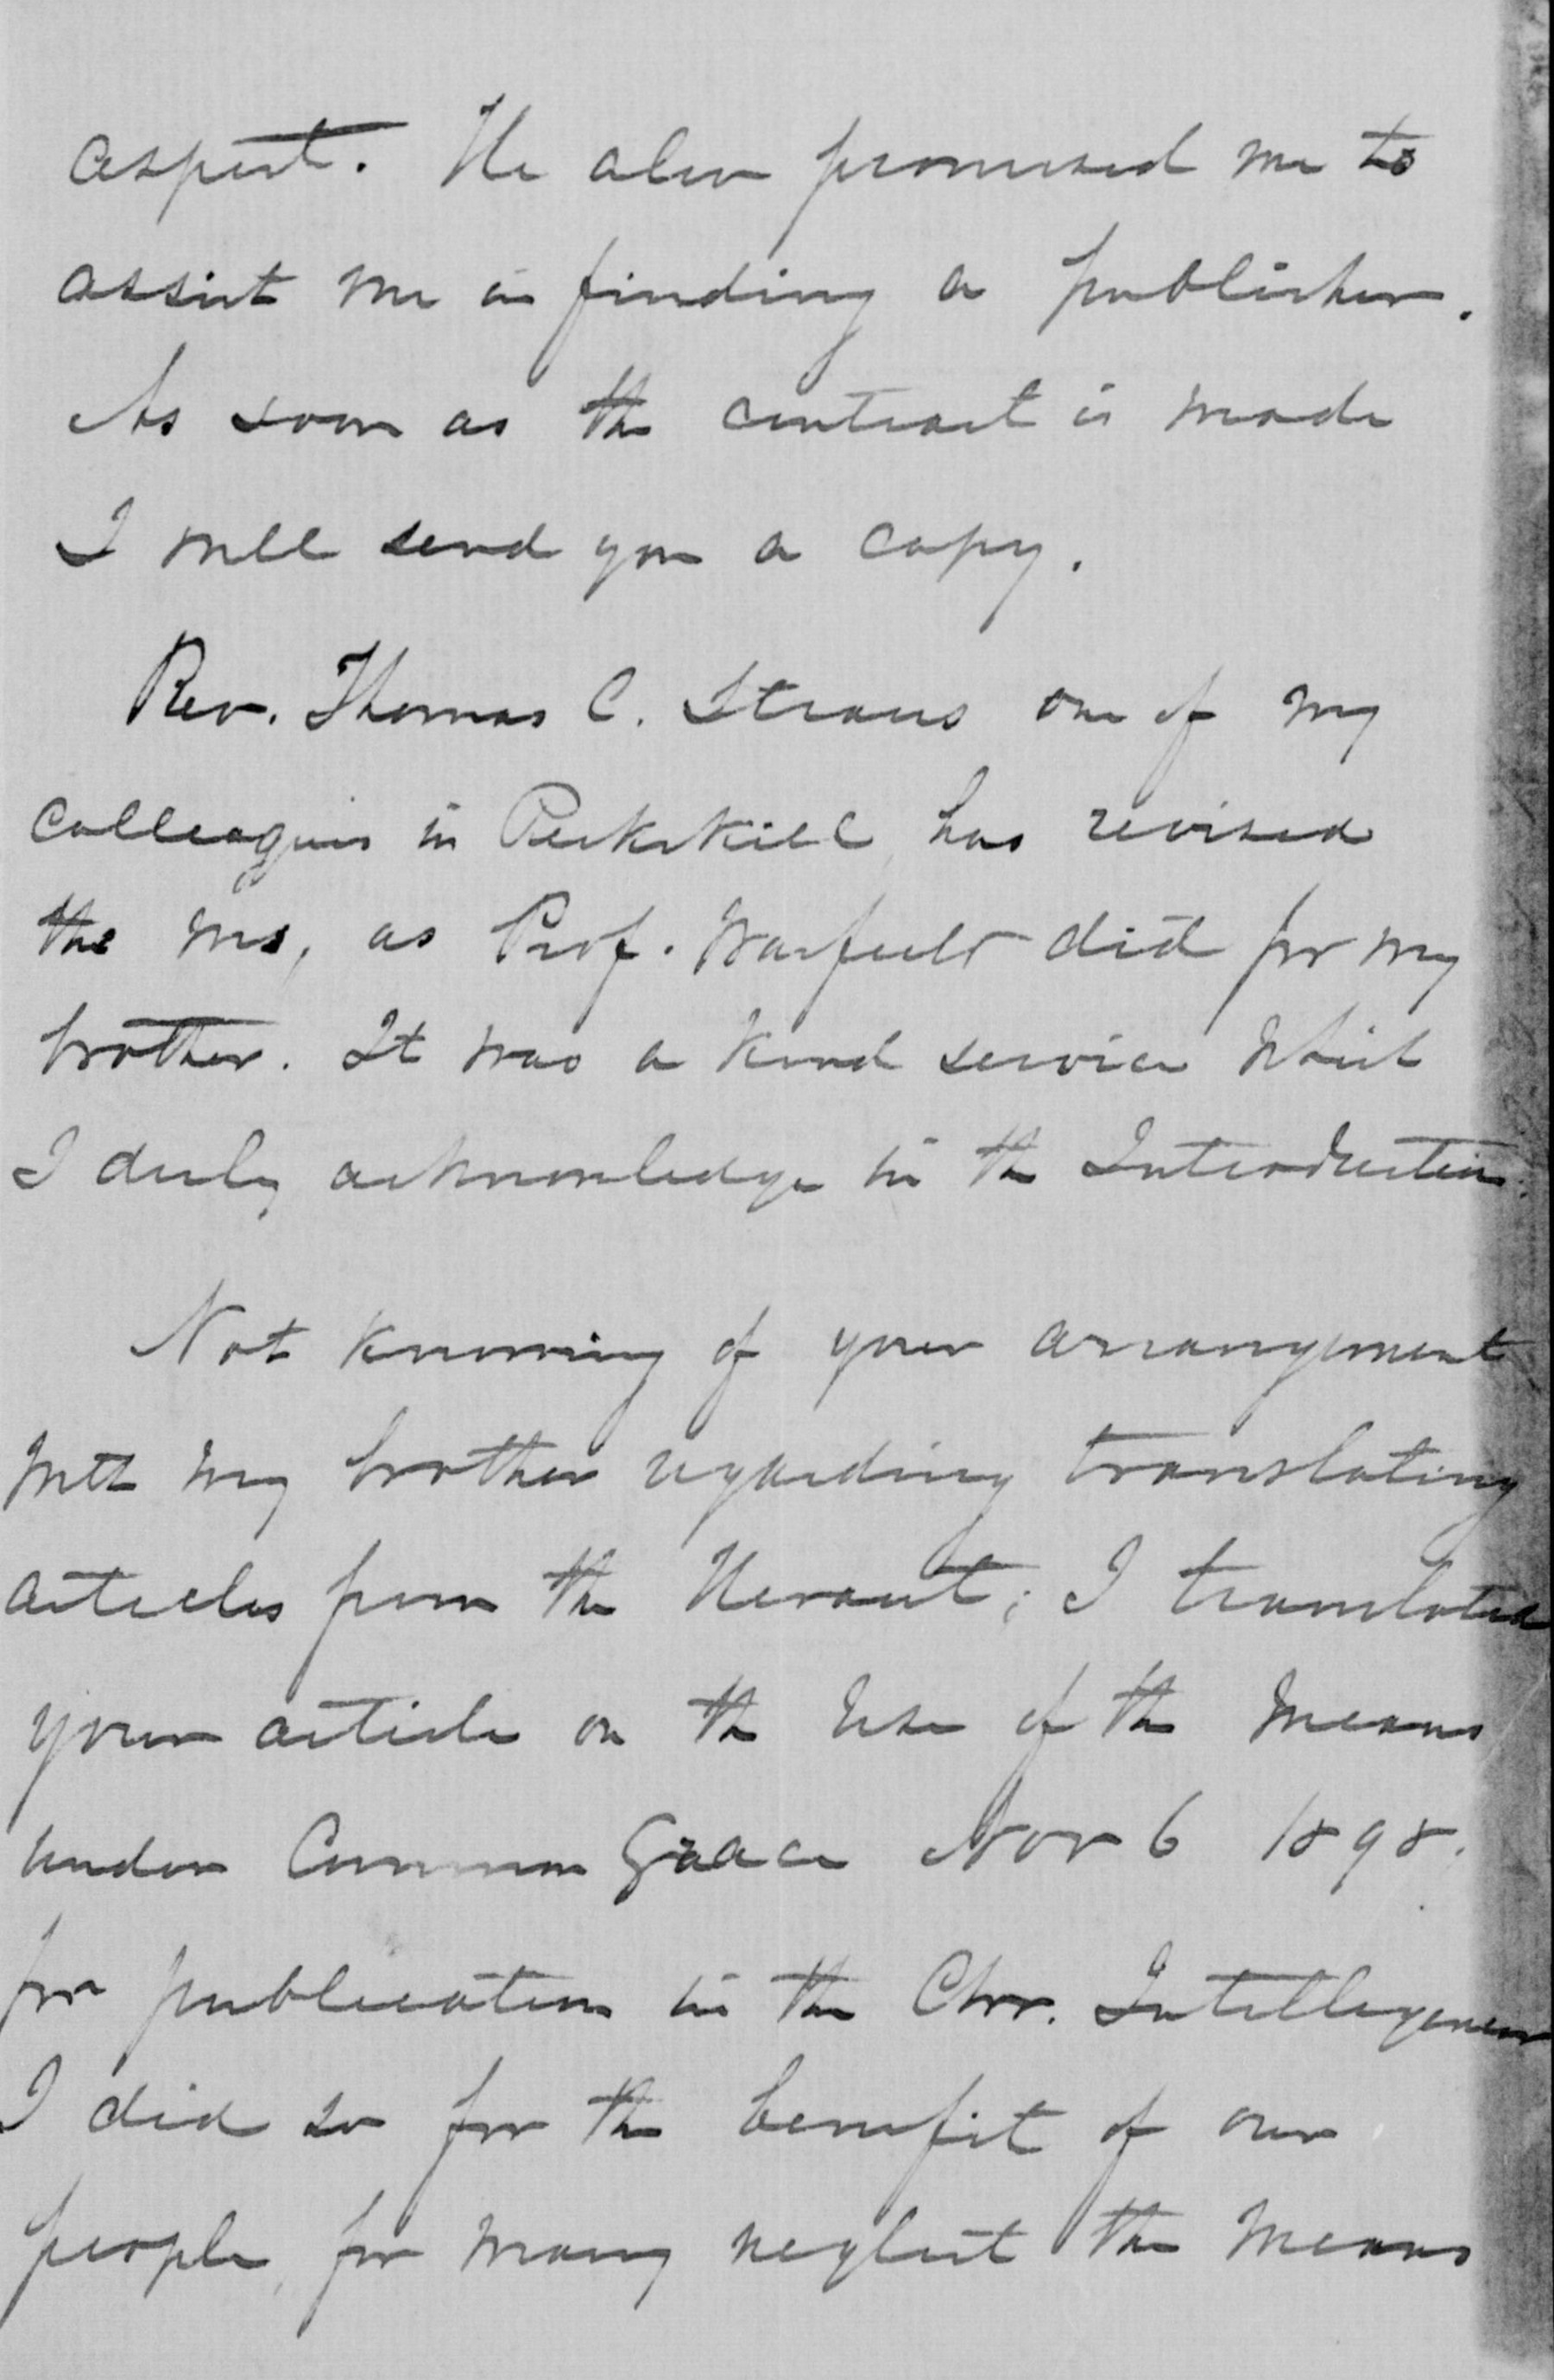 aspect. He also promised me to
assist me in finding a publisher.
As soon as the contract is made
I will send you a copy.
Rev. Thomas C. Straus one of my
colleagues in Peekskill, has revised
the ms, as Prof. Warfield did for my
brother. It was a kind service which
I duly acknowledge in the Introduction.
Not knowing of your arrangement
with my brother regarding translating
articles from the Heraut; I translated
your article on the Use of the Means
under Common Grace Nov 6 1898.
for publication in the Chr. Intelligencer
I did so for the benefit of our
people, for many neglect the means